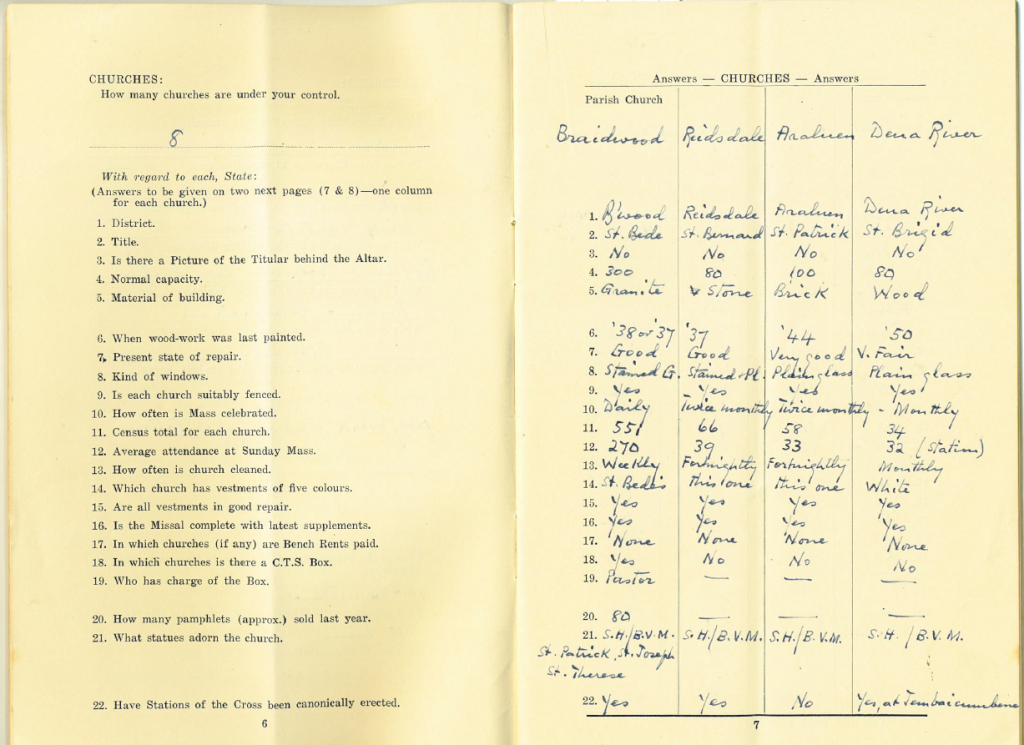 CHURCHES:
How many churches are under your control.
8
With regard to each, State:
(Answers to be given on two next pages (7 & 8)—one column
for each church.)
1. District.
2. Title.
3. Is there a Picture of the Titular behind the Altar.
4. Normal capacity.
5. Material of building.
6. When wood-work was last painted.
7. Present state of repair.
8. Kind of windows.
9. Is each church suitably fenced.
10. How often is Mass celebrated.
11. Census total for each church.
12. Average attendance at Sunday Mass.
13. How often is church cleaned.
14. Which church has vestments of five colours.
15. Are all vestments in good repair.
16. Is the Missal complete with latest supplements.
17. In which churches (if any) are Bench Rents paid.
18. In which churches is there a C.T.S. Box.
19. Who has charge of the Box.
20. How many pamphlets (approx.) sold last year.
21. What statues adorn the church.
22. Have Stations of the Cross been canonically erected.
6
Answers — CHURCHES — Answers
Parish Church
Braidwood Reidsdale Araluen Deua River
1. B'wood Reidsdale Araluen Deua River
2. St. Bede St. Bernard St. Patrick St. Brigid
3. No No No No
4. 300 80 100 80
5. Granite Stone Brick Wood
6. '38 or '37 '37 '44 '50
7. Good Good Very good V. Fair
8. Stained G. Stained & Pl. Plain glass Plain glass
9. Yes Yes Yes Yes
10. Daily Twice monthly Twice monthly - Monthly
11. 551 66 58 34
12. 270 39 33 32 (Station)
13. Weekly Fortnightly Fortnightly Monthly
14. St. Bede's This one This one White
15. Yes Yes Yes Yes
16. Yes Yes Yes Yes
17. None None None None
18. Yes No No No
19. Pastor — — —
20. 80 — — —
21. S.H./B.V.M. S.H./B.V.M. S.H./B.V.M. S.H./B.V.M.
St. Patrick, St. Joseph
St. Therese
22. Yes Yes No Yes, at Jembaicumbene
7